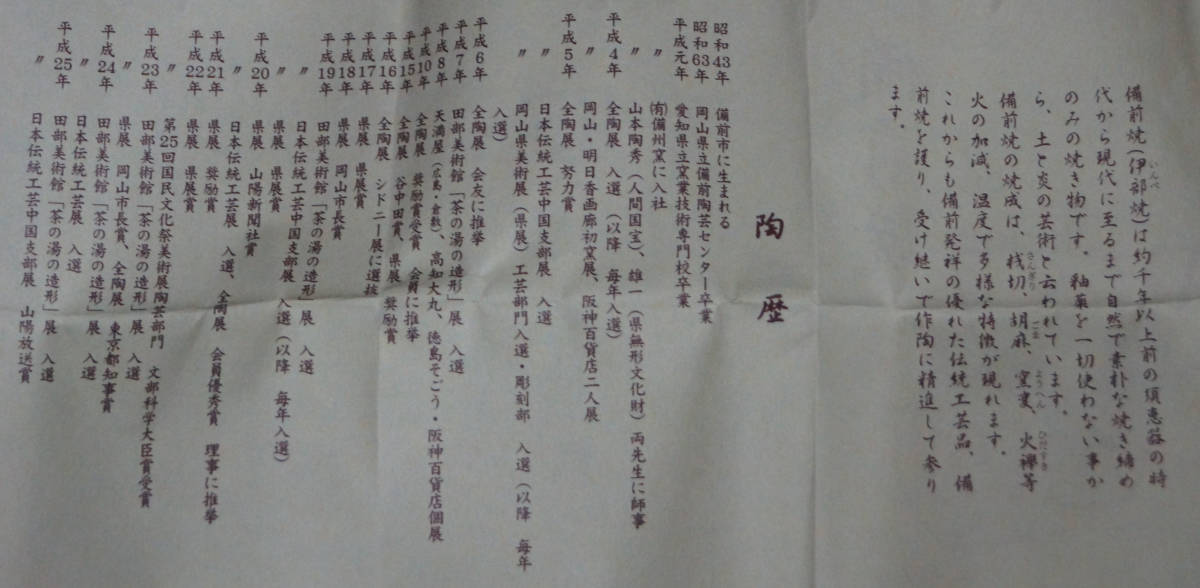 備前焼(伊部焼)は約千年以上前の須恵器の時
代から現代に至るまで自然で素朴な焼き締め
のみの焼き物です。釉薬を一切使わない事か
ら、土と炎の芸術と云われています。
備前焼の焼成は、桟切、胡麻、窯変、火襷等
火の加減、温度で多様な特徴が現れます。
これからも備前発祥の優れた伝統工芸品、備
前焼を護り、受け継いで作陶に精進して参り
ます。
陶歴
昭和43年 備前市に生まれる
昭和63年 岡山県立備前陶芸センター卒業
平成元年 愛知県立窯業技術専門校卒業
〃 (有)備州窯に入社
〃 山本陶秀(人間国宝)、雄一(県無形文化財)両先生に師事
平成4年 全陶展 入選(以降 毎年入選)
〃 岡山・明日香画廊初窯展、阪神百貨店二人展
平成5年 全陶展 努力賞
〃 日本伝統工芸中国支部展 入選
〃 岡山県美術展(県展)工芸部門入選・彫刻部 入選(以降 毎年
入選)
平成6年 全陶展 会友に推挙
平成7年 田部美術館「茶の湯の造形」展 入選
平成8年 天満屋(広島・倉敷)、高知大丸、徳島そごう・阪神百貨店個展
平成10年 全陶展 奨励賞受賞 会員に推挙
平成15年 全陶展 谷中田賞、県展 奨励賞
平成16年 全陶展 シドニー展に選抜
平成17年 県展 県展賞
平成18年 県展 岡山市長賞
平成19年 田部美術館「茶の湯の造形」展 入選
〃 日本伝統工芸中国支部展 入選(以降 毎年入選)
〃 県展 県展賞
平成20年 県展 山陽新聞社賞
〃 日本伝統工芸展 入選、全陶展 会員優秀賞 理事に推挙
平成21年 県展 奨励賞
平成22年 県展 県展賞
〃 第25回国民文化祭美術展陶芸部門 文部科学大臣賞受賞
平成23年 田部美術館「茶の湯の造形」展 入選
〃 県展 岡山市長賞、全陶展 東京都知事賞
平成24年 田部美術館「茶の湯の造形」展 入選
〃 日本伝統工芸展 入選
平成25年 田部美術館「茶の湯の造形」展 入選
〃 日本伝統工芸中国支部展 山陽放送賞